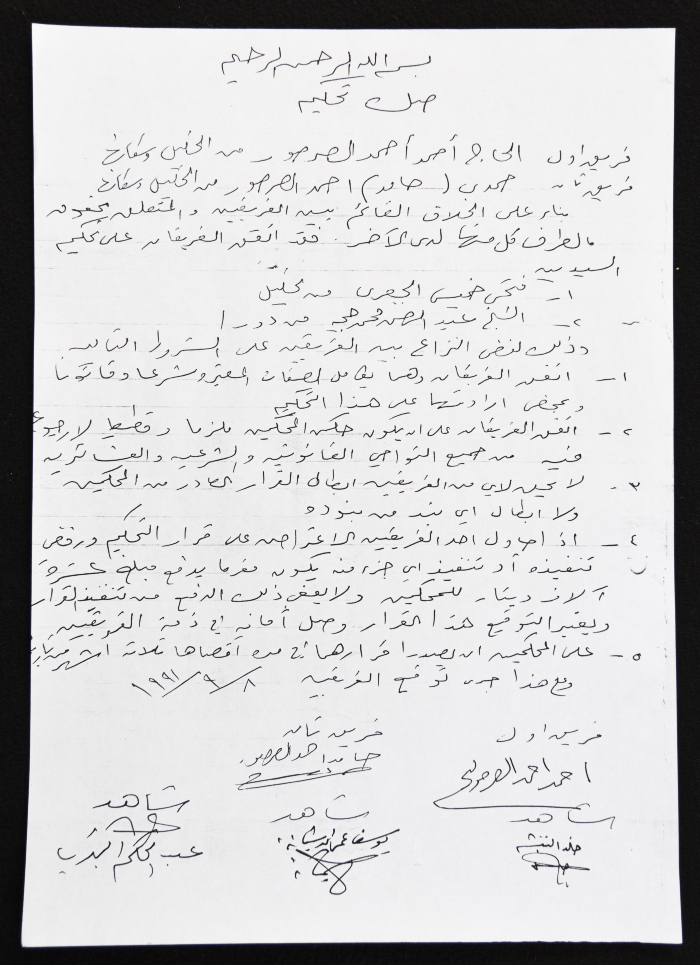 بسم الله الرحمن الرحيم
صك تحكيم
فريق اول الحاج أحمد أحمد الصرصور من الخليل وسكانها
فريق ثان حمدي (حامد) احمد الصرصور من الخليل وسكانها
بناء على الخلاف القائم بين الفريقين والمتعلق بحقوق
الطرف كل منهما لدى الآخر. فقد اتفق الفريقان على تحكيم
السيدين
١- فتحي خميس الجعبري من الخليل
٢- الشيخ عبد الرحمن محمد من دورا
وذلك لفض النزاع بين الفريقين على الشروط التالية
١- اتفق الفريقان وهما بكامل الصفات المعتبرة شرعا وقانونا
وبمحض ارادتهما على هذا التحكيم
٢- اتفق الفريقان على ان يكون حكم المحكمين ملزما وقطعيا لا رجوع
فيه من جميع النواحي القانونية والشرعية والعشائرية
٣- لا يحق لاي من الفريقين ابطال القرار الصادر من المحكمين
ولا ابطال اي بند من بنوده
٤- اذا حاول احد الفريقين الاعتراض على قرار التحكيم ورفض
تنفيذه أو تنفيذ اي جزء منه يكون مغرما بدفع مبلغ عشرة
آلاف دينار للمحكمين ولا يعفي ذلك الدفع من تنفيذ القرار
ويعتبر التوقيع هذا القرار وصل أمانة في ذمة الفريقين
٥- على المحكمين ان يصدرا قرارهما في مدة أقصاها ثلاثة اشهر من تاريخ
ومع هذا جرى توقيع الفريقين ١٩٩١/٩/٨
فريق اول
فريق ثان
احمد احمد الصرصور
حامد احمد الصرصور
شاهد
شاهد
شاهد
يوسف
عبد الحكيم